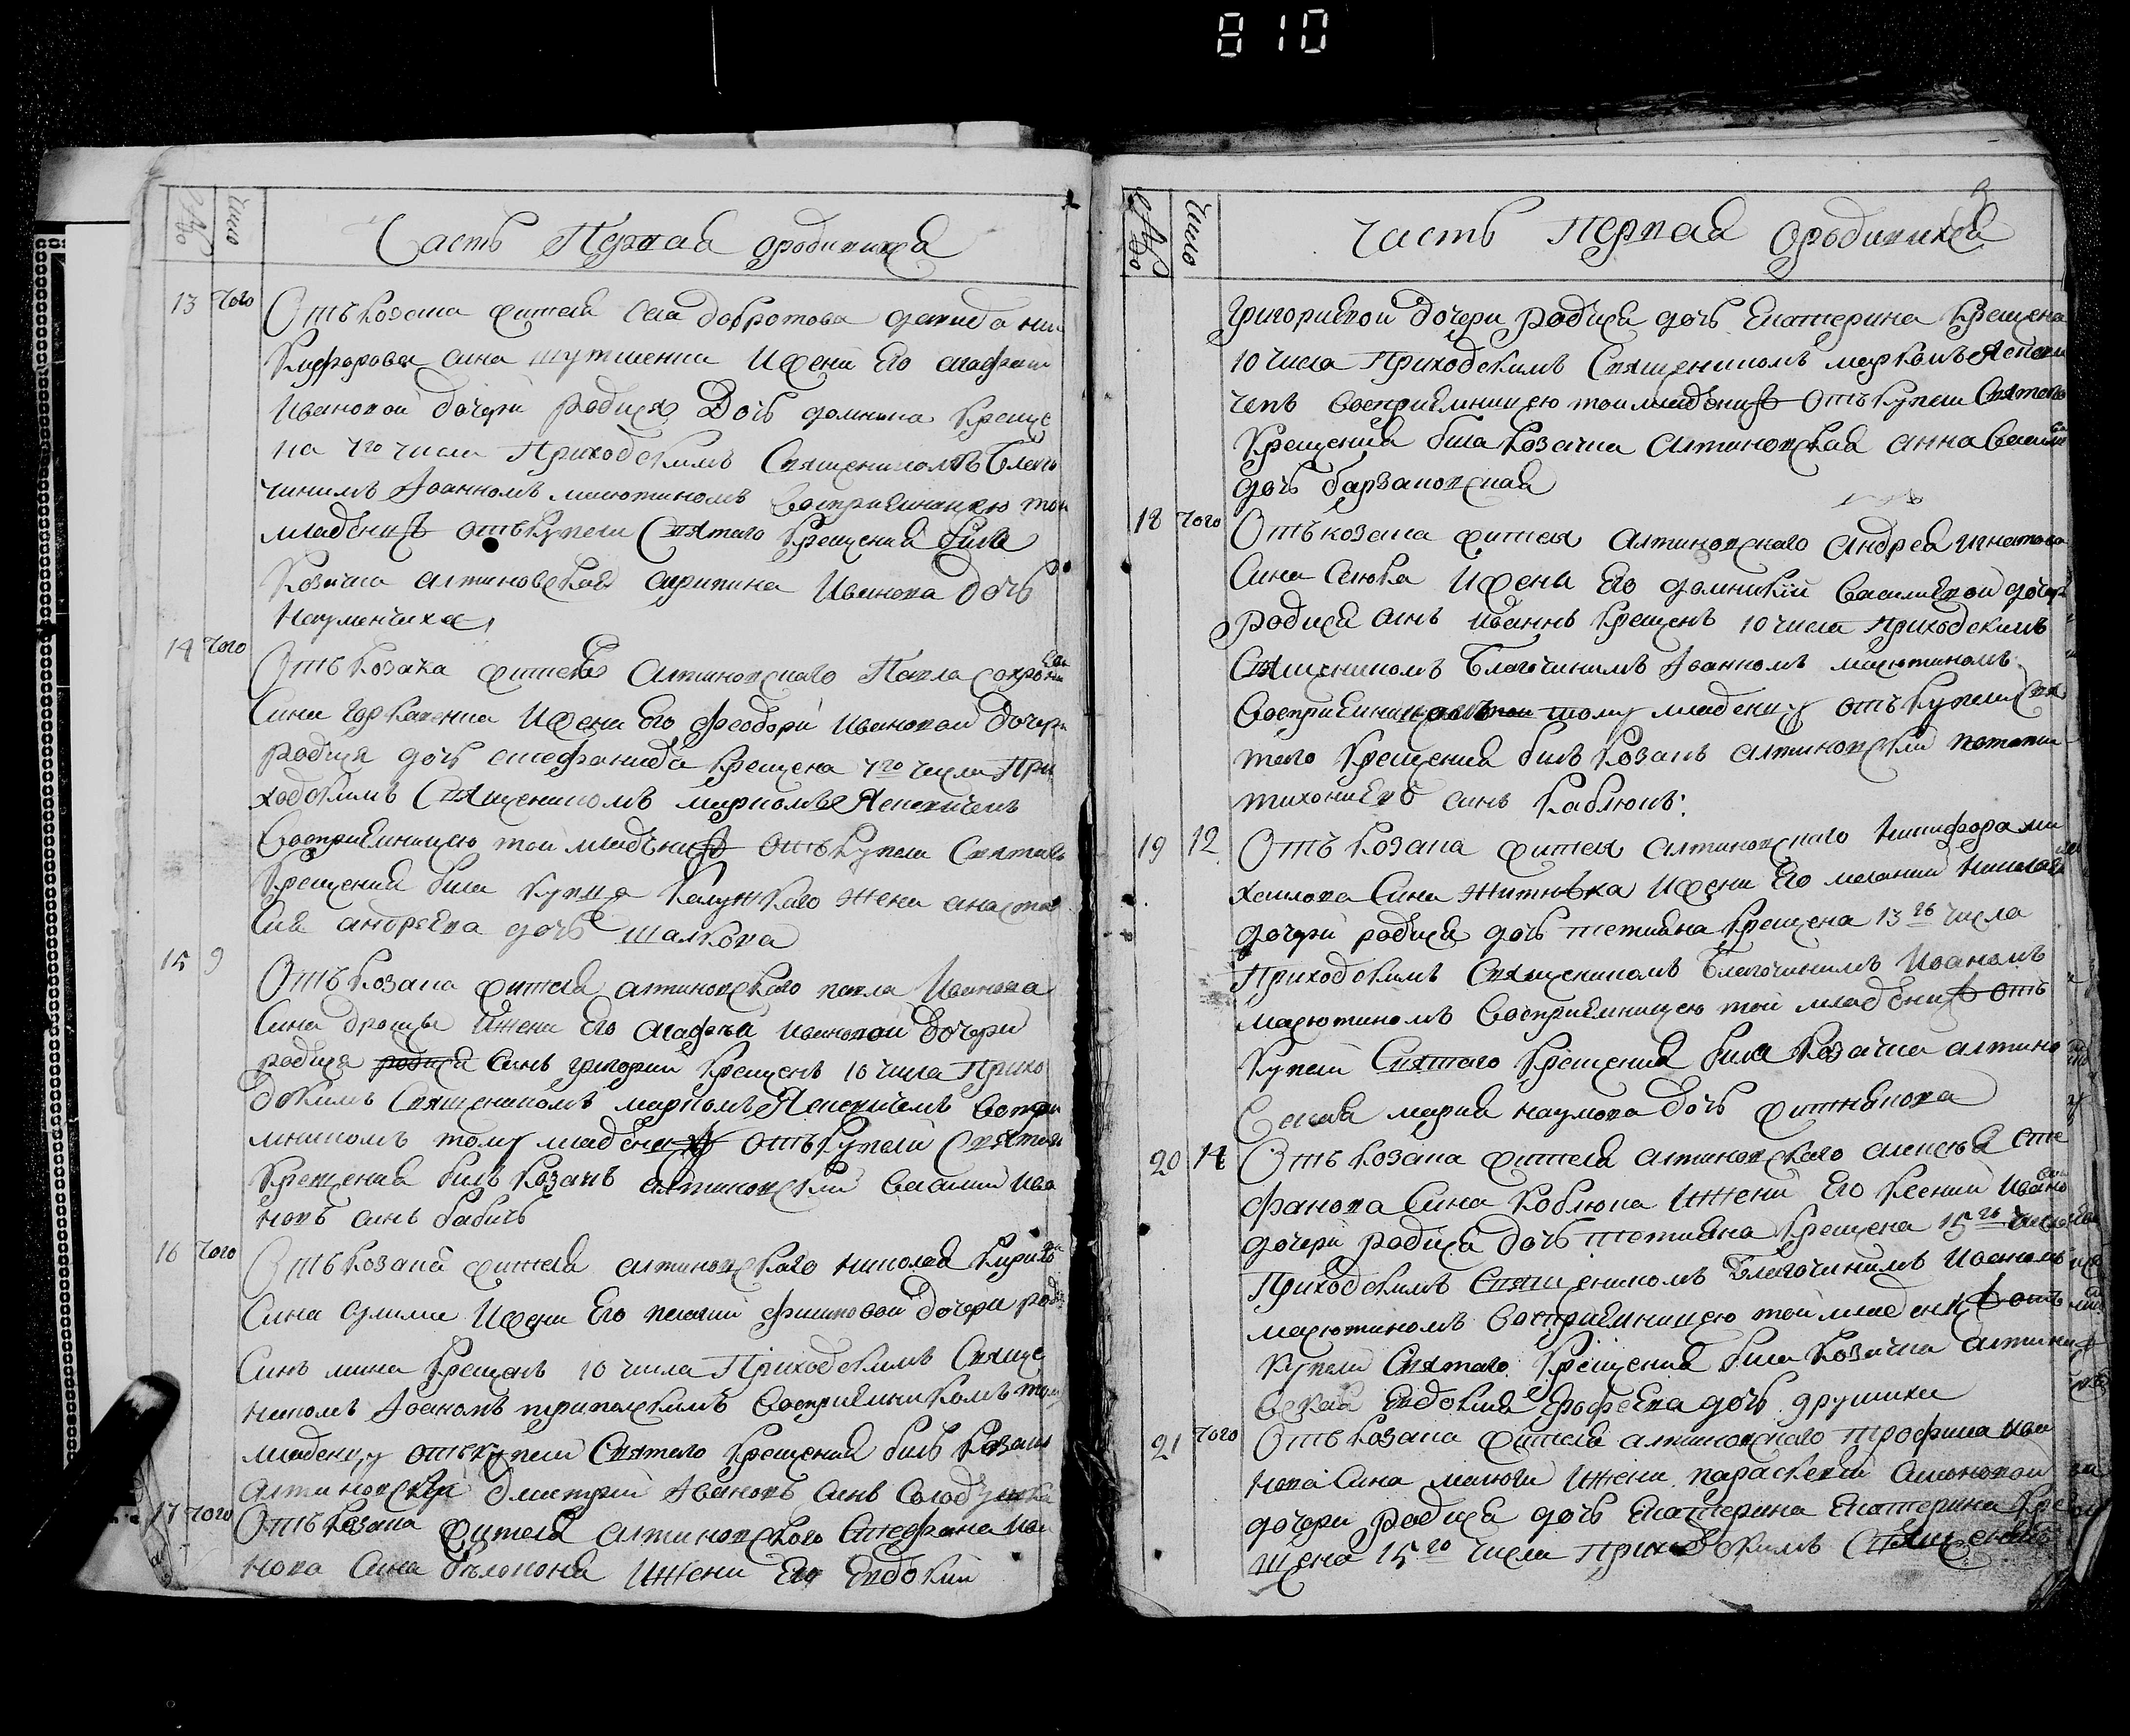 810
№
Число
Часть Первая ородившихся
13 того Отъ козака жителя села добротова демида ни
кифорова сина шутшенка Ижени Его агафии
Ивановой дочери родилася Дочь домникиа креще
на 7го числа Приходскимъ Священникомъ Благо
чинимъ Іоанномъ малютиномъ восприемницею той
младеници отъ купели Святаго крещения била
козачка алтиновская агрипина Иванова дочь
Науменчиха
14 того Отъ козака жителя алтиновскаго Павла
сина горкавенка Ижени Его феодори Ивановой дочери
родилася дочь стефанида крещена 7го числа При
ходскимъ Священникомъ маркомъ Ясновичемъ
восприемницею той младеници отъ купели Святаго
крещения била купца калужкаго жена анаста
сия андреева дочь шалкова
15 9 Отъ козака жителя алтиновскаго павла Иванова
сина Ижени Его агафии Ивановой дочери
родился родися синъ григорий крещенъ 10 числа Прихо
дскимъ Священникомъ маркомъ Ясновичемъ воспри
мникомъ тому младенцу отъ купели Святаго
крещения билъ козакъ алтиновский василий Ива
новъ синъ бабичъ
16 того Отъ козака жителя алтиновскаго николая кирилова
сина Ижени Его пелагии филиповой дочери роди
Синъ мина крещенъ 10 числа Приходскимъ Свяще
никомъ Іоаномъ восприемникомъ тому
младенцу отъ купели Святаго крещения билъ козакъ
алтиновский дмитрий Івановъ синъ
17 того Отъ козака жителя алтиновскаго Стефана Ива
нова Сина белоконя Ижени Его Евдокии
№
Число
Часть Первая ородившихся
григориевой дочери родилася дочь Екатерина крещена
10 числа Приходскимъ Священникомъ маркомъ Яснови
чемъ восприемницею той младеници отъ купели Святаго
крещения била козачка алтиновская анна василева
дочь барзаковская
18 того Отъ козака жителя алтиновскаго андрея игнатова
Сина Ижени Его домникии василиевой дочери
родился синъ иваннъ крещенъ 10 числа приходскимъ
Священникомъ Благочинимъ Іоанномъ малютиномъ
восприемникомъ той тому младенцу отъ купели Свя
таго крещения билъ козакъ алтиновский потапий
тихониевъ синъ каблюкъ
19 12 Отъ козака жителя алтиновскаго никифора ми
хаилова Сина житника Ижени Его мелании николаевой
дочери родися дочь тетиана крещена 13го числа
Приходскимъ Священникомъ Благочинимъ Иваномъ
малютиномъ восприемницею той младеници отъ
купели Святаго крещения била козачка алтино
вская мария наумова дочь житникова
20 14 Отъ козака жителя алтиновскаго алексея сте
фанова Сина коблюка Ижени Его ксении Ивановой
дочери родися дочь тетиана крещена 15го числа
Приходскимъ Священникомъ Благочинимъ Иваномъ
малютиномъ восприемницею той младеници отъ
купели Святаго крещения била козачка алтино
вская Евдокия Ерофеева дочь друшиха
21 того Отъ козака жителя алтиновскаго трофима ива
нова Сина малюги Ижени параскевии симоновой
дочери родися дочь Екатерина Екатерина кре
щена 15го числа приходскимъ Священикомъ